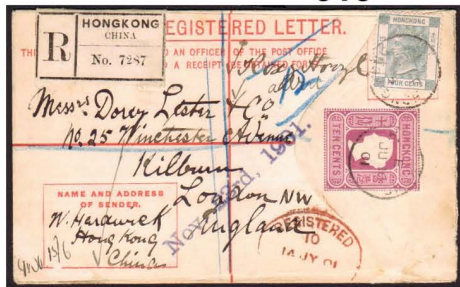 HONGKONG
CHINA
R
No. 7287
REGISTERED LETTER.
AN OFFICER OF THE POST OFFICE
A RECEIPT
HONGKONG
FOUR CENTS
Messrs Dorey Lester & Co
No. 25 Winchester Avenue
Kilburn
London NW
England
Nov. 22nd, 1901.
HONGKONG
TEN CENTS
NAME AND ADDRESS
OF SENDER.
W. Hardwick
Hong Kong
China
REGISTERED
10
14 JY 01